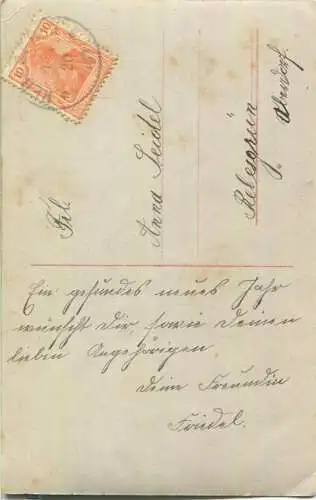 Frl.
Anna Seidel
Oberdorf
Ein gesundes neues Jahr
wünscht Dir, sowie Deinen
lieben Angehörigen
Deine Freundin
Friedel.
10
10